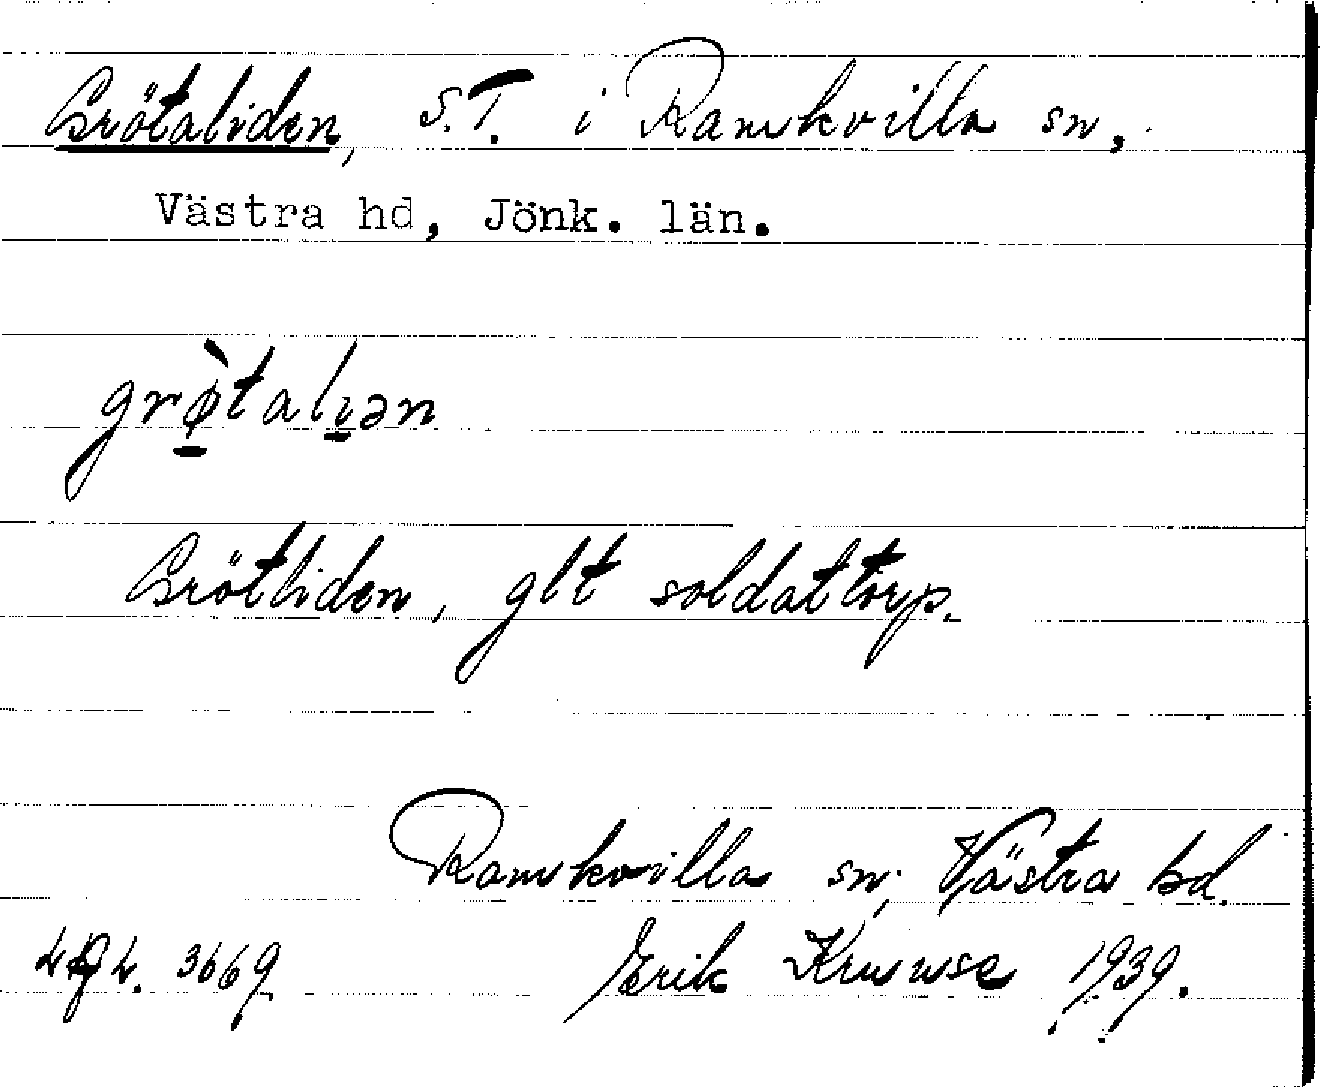 Grötaliden, S.T. i Ramkvilla sn,
Västra hd, Jönk. län.
grø̀talıən
Grötliden, glt soldattorp.
Ramkvilla sn, Västra hd.
3669 Erik Kruuse 1939.